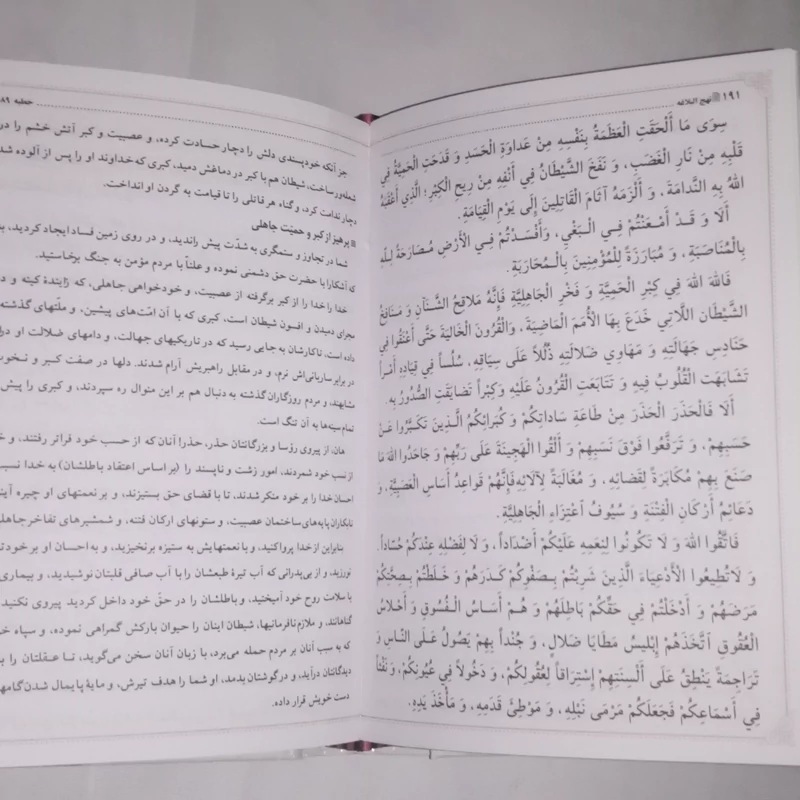 ۱۹۱ نهج البلاغه
سِوَى مَا أَلْحَقَتِ الْعَظَمَةُ بِنَفْسِهِ مِنْ عَدَاوَةِ الْحَسَدِ وَ قَدَحَتِ الْحَمِيَّةُ فِي
قَلْبِهِ مِنْ نَارِ الْغَضَبِ، وَ نَفَخَ الشَّيْطَانُ فِي أَنْفِهِ مِنْ رِيحِ الْكِبْرِ؛ الَّذِي أَعْقَبَهُ
اللهُ بِهِ النَّدَامَةَ، وَ أَلْزَمَهُ آثَامَ الْقَاتِلِينَ إِلَى يَوْمِ الْقِيَامَةِ.
أَلَا وَ قَدْ أَمْعَنْتُمْ فِي الْبَغْيِ، وَأَفْسَدْتُمْ فِي الْأَرْضِ مُصَارَحَةً لِلّهِ
بِالْمُنَاصَبَةِ، وَ مُبَارَزَةً لِلْمُؤْمِنِينَ بِالْمُحَارَبَةِ.
فَاللهَ اللهَ فِي كِبْرِ الْحَمِيَّةِ وَ فَخْرِ الْجَاهِلِيَّةِ فَإِنَّهُ مَلَاقِحُ الشَّنَآنِ وَ مَنَافِخُ
الشَّيْطَانِ اللَّاتِي خَدَعَ بِهَا الْأُمَمَ الْمَاضِيَةَ، وَالْقُرُونَ الْخَالِيَةَ حَتَّى أَعْنَقُوا فِي
حَنَادِسِ جَهَالَتِهِ وَ مَهَاوِي ضَلَالَتِهِ ذُلُلاً عَلَى سِيَاقِهِ، سُلُساً فِي قِيَادِهِ أَمْراً
تَشَابَهَتِ الْقُلُوبُ فِيهِ وَ تَتَابَعَتِ الْقُرُونُ عَلَيْهِ وَكِبْراً تَضَايَقَتِ الصُّدُورُ بِهِ.
أَلَا فَالْحَذَرَ الْحَذَرَ مِنْ طَاعَةِ سَادَاتِكُمْ وَ كُبَرَائِكُمْ الَّذِينَ تَكَبَّرُوا عَنْ
حَسَبِهِمْ، وَ تَرَفَّعُوا فَوْقَ نَسَبِهِمْ وَ أَلْقَوُا الْهَجِينَةَ عَلَى رَبِّهِمْ وَ جَاحَدُوا اللهَ مَا
صَنَعَ بِهِمْ مُكَابَرَةً لِقَضَائِهِ، وَ مُغَالَبَةً لِآلَائِهِ فَإِنَّهُمْ قَوَاعِدُ أَسَاسِ الْعَصَبِيَّةِ، وَ
دَعَائِمُ أَرْكَانِ الْفِتْنَةِ وَ سُيُوفُ اعْتِزَاءِ الْجَاهِلِيَّةِ.
فَاتَّقُوا اللهَ وَ لَا تَكُونُوا لِنِعَمِهِ عَلَيْكُمْ أَضْدَاداً، وَ لَا لِفَضْلِهِ عِنْدَكُمْ حُسَّاداً.
وَ لَاتُطِيعُوا الْأَدْعِيَاءَ الَّذِينَ شَرِبْتُمْ بِصَفْوِكُمْ كَدَرَهُمْ وَ خَلَطْتُمْ بِصِحَّتِكُمْ
مَرَضَهُمْ وَ أَدْخَلْتُمْ فِي حَقِّكُمْ بَاطِلَهُمْ وَ هُمْ أَسَاسُ الْفُسُوقِ وَ أَحْلَاسُ
الْعُقُوقِ اتَّخَذَهُمْ إِبْلِيسُ مَطَايَا ضَلَالٍ، وَ جُنْداً بِهِمْ يَصُولُ عَلَى النَّاسِ وَ
تَرَاجِمَةً يَنْطِقُ عَلَى أَلْسِنَتِهِمْ إِسْتِرَاقاً لِعُقُولِكُمْ، وَ دُخُولاً فِي عُيُونِكُمْ، وَ نَفْثاً
فِي أَسْمَاعِكُمْ فَجَعَلَكُمْ مَرْمَى نَبْلِهِ، وَ مَوْطِئَ قَدَمِهِ، وَ مَأْخَذَ يَدِهِ.
خطبه
جز آنکه خودپسندی دلش را دچار حسادت کرده، و عصبیت و کبر آتش خشم را در
شعله‌ور ساخت، شیطان هم با کبر در دماغش دمید، کبری که خداوند او را پس از آلوده شد
دچار ندامت کرد، و گناه هر قاتلی را تا قیامت به گردن او انداخت.
پرهیز از کبر و حمیت جاهلی
شما در تجاوز و ستمگری به شدّت پیش راندید، و در روی زمین فساد ایجاد کردید،
که آشکارا با حضرت حق دشمنی نموده و علناً با مردم مؤمن به جنگ برخاستید.
خدا را خدا را از کبر برگرفته از عصبیت، و خودخواهی جاهلی، که زایندهٔ کینه و
مجرای دمیدن و افسون شیطان است، کبری که با آن امّت‌های پیشین، و ملّتهای گذشته
داده است، تاکارشان به جایی رسید که در تاریکیهای جهالت، و دامهای ضلالت او
در برابر ساربانی‌اش نرم، و در مقابل راهبریش آرام شدند. دلها در صفت کبر و نخوت
مشابهند، و مردم روزگاران گذشته به دنبال هم بر این منوال ره سپردند، و کبری را پیش
تمام سینه‌ها به آن تنگ است.
هان، از پیروی رؤسا و بزرگانتان حذر، حذر! آنان که از حسب خود فراتر رفتند، و
از نسب خود شمردند، امور زشت و ناپسند را (بر اساس اعتقاد باطلشان) به خدا نسبت
احسان خدا را بر خود منکر شدند، تا با قضای حق بستیزند، و بر نعمتهای او چیره
نابکاران پایه‌های ساختمان عصبیت، و ستونهای ارکان فتنه، و شمشیرهای تفاخر جاهلی
بنابراین از خدا پرواکنید، و با نعمتهایش به ستیزه برنخیزید، و به احسان او بر خودتان
نورزید، و از بی‌پدرانی که آب تیرهٔ طبعشان را با آب صافی قلبتان نوشیدید، و بیماری
با سلامت روح خود آمیختید، و باطلشان را در حقّ خود داخل کردید پیروی نکنید
گناهانند، و ملازم نافرمانیها، شیطان اینان را حیوان بارکش گمراهی نموده، و سپاه خود
که به سبب آنان بر مردم حمله می‌برد، با زبان آنان سخن می‌گوید، تا عقلتان را
دیدگانتان درآید، و در گوشتان بدمد، او شما را هدف تیرش، و مایهٔ پایمال شدن گامها
دست خویش قرار داده.